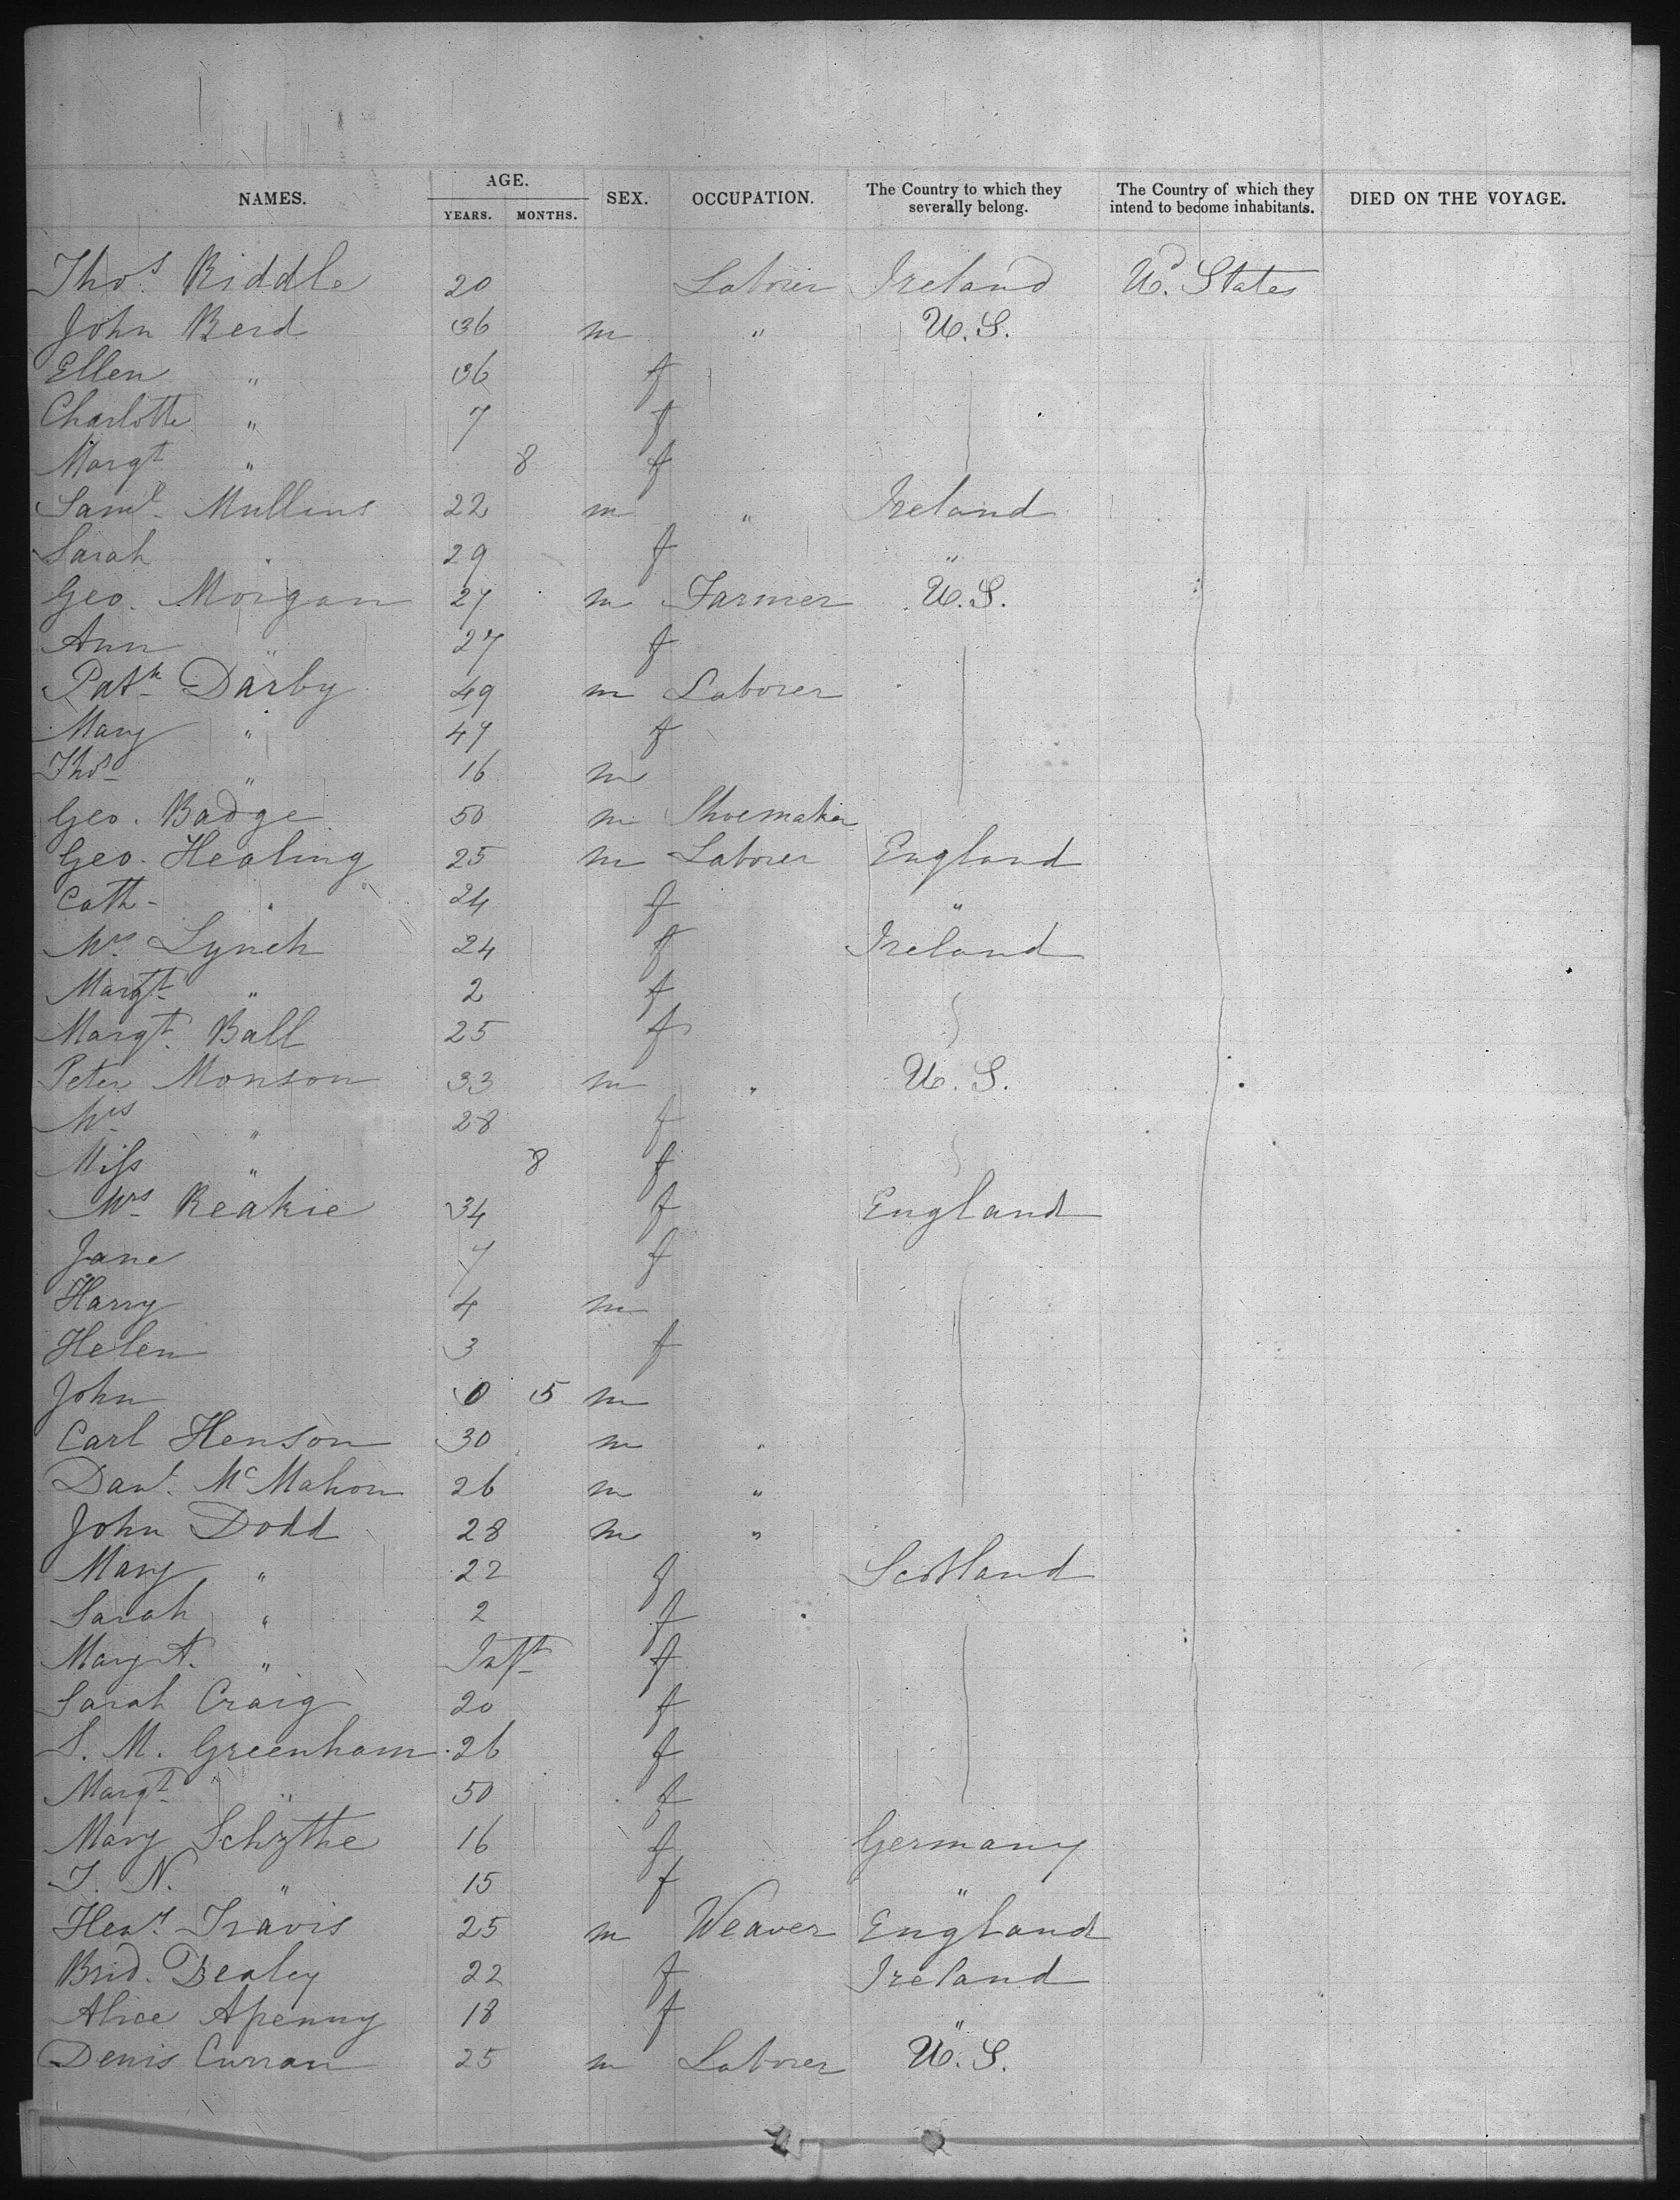 NAMES. AGE. YEARS. MONTHS. SEX. OCCUPATION. The Country to which they severally belong. The Country of which they intend to become inhabitants. DIED ON THE VOYAGE.
Thos. Riddle 20 Laborer Ireland Ud. States
John Berd 36 m " U.S.
Ellen " 36 f
Charlotte " 7 f
Margt " 8 f
Saml. Mullins 22 m " Ireland
Sarah " 29 f "
Geo. Morgan 27 m Farmer U.S.
Ann " 27 f
Patk Darby 49 m Laborer
Mary " 47 f
Thos " 16 m
Geo. Badge 50 m Shoemaker
Geo. Healing 25 m Laborer England
Cath " 24 f "
Mrs Lynch 24 f Ireland
Margt " 2 f
Margt. Ball 25 f
Peter Monson 33 m " U.S.
Mrs " 28 f
Miss " 8 f
Mrs Reakie 34 f England
Jane 7 f
Harry 4 m
Helen 3 f
John 0 5 m
Carl Henson 30 m "
Danl. McMahon 26 m "
John Dodd 28 m "
Mary " 22 f Scotland
Sarah " 2 f
Mary A. " Inft f
Sarah Craig 20 f
S. M. Greenham 26 f
Margt " 50 f
Mary Schythe 16 f Germany
T. N. " 15 f "
Heny Travis 25 m Weaver England
Brid. Dealey 22 f Ireland
Alice Apenny 18 f "
Denis Curran 25 m Laborer U.S.